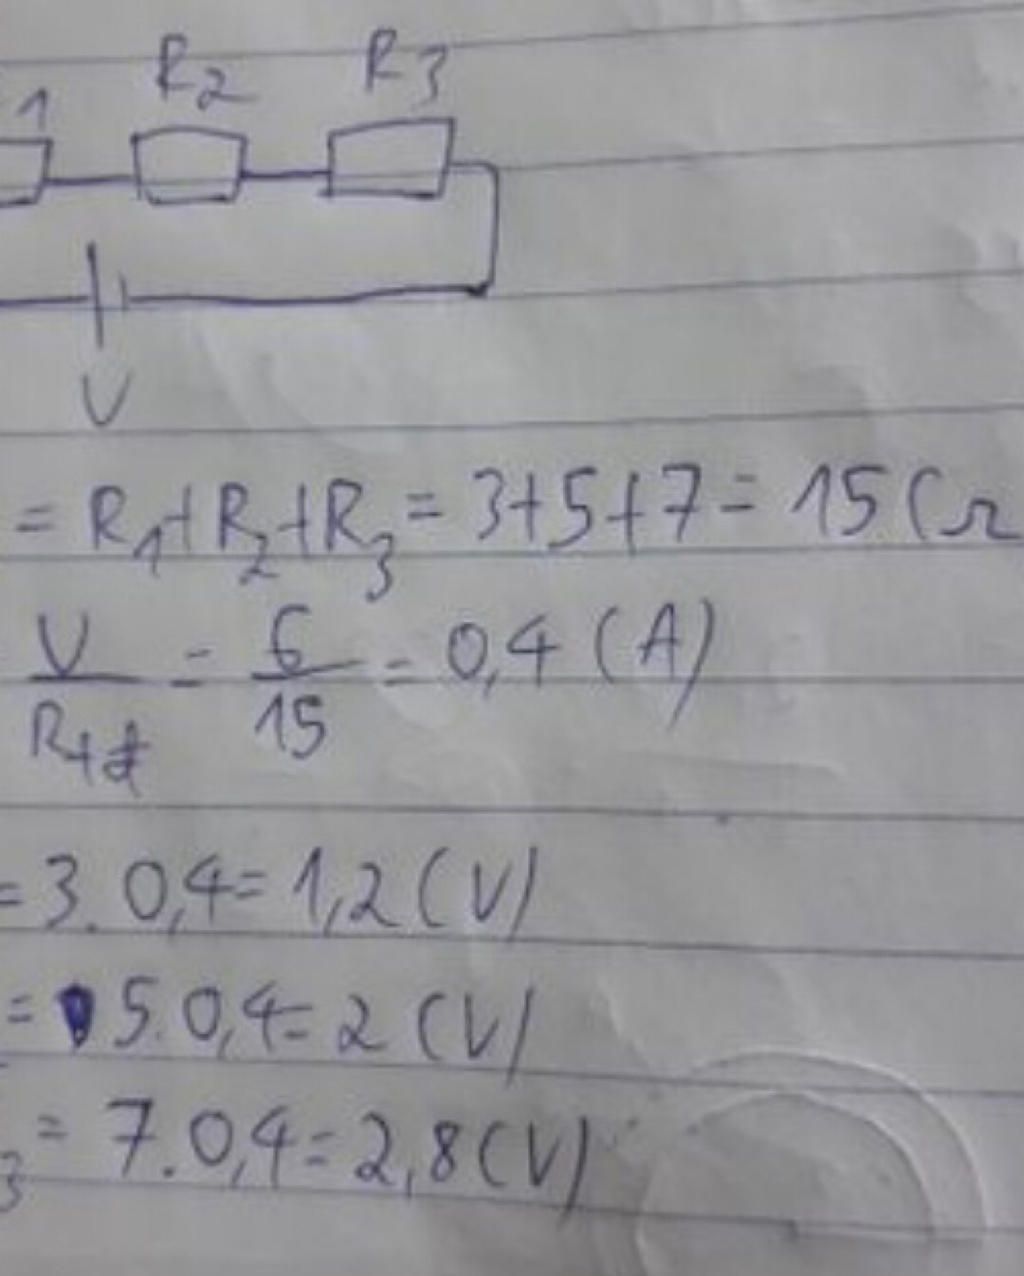 1 R2 R3
U
= R1+R2+R3 = 3+5+7 = 15 (Ω
U/Rtđ = 6/15 = 0,4 (A)
= 3.0,4 = 1,2 (V)
= 5.0,4 = 2 (V)
3 = 7.0,4 = 2,8 (V)